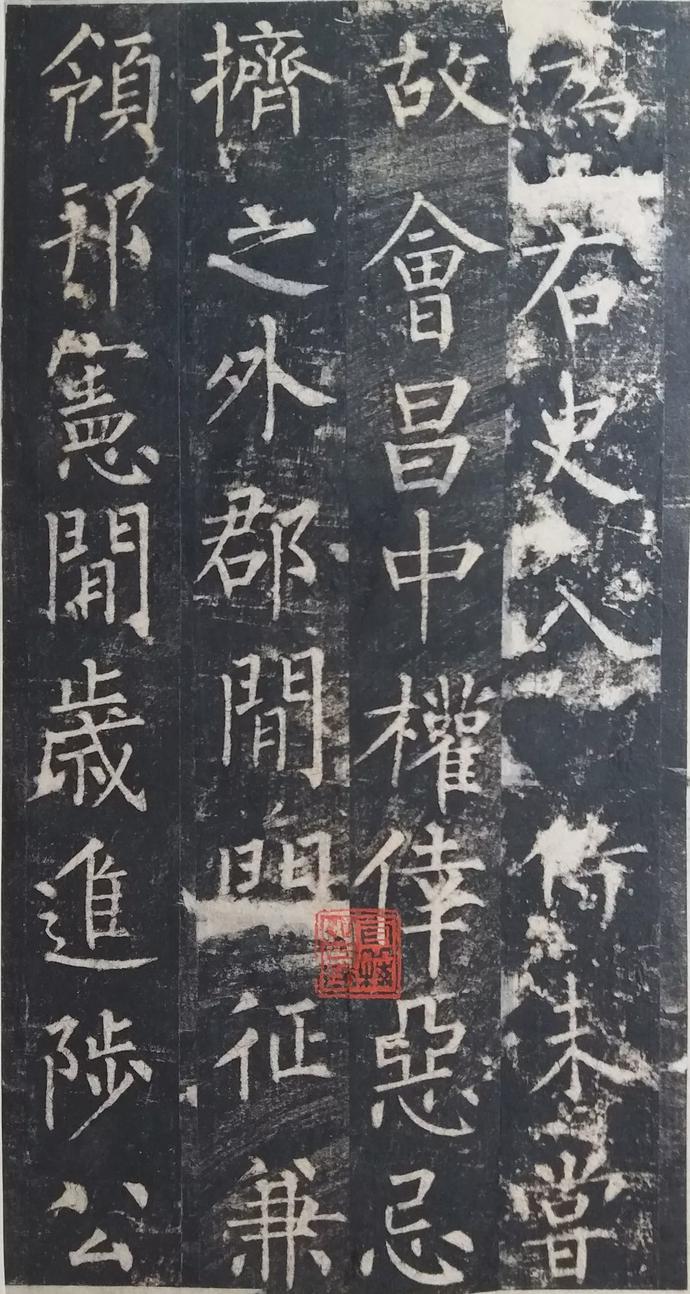 為右史入侍未嘗
故會昌中權倖惡忌
擠之外郡閒征兼
領邦憲閒歲進陟公